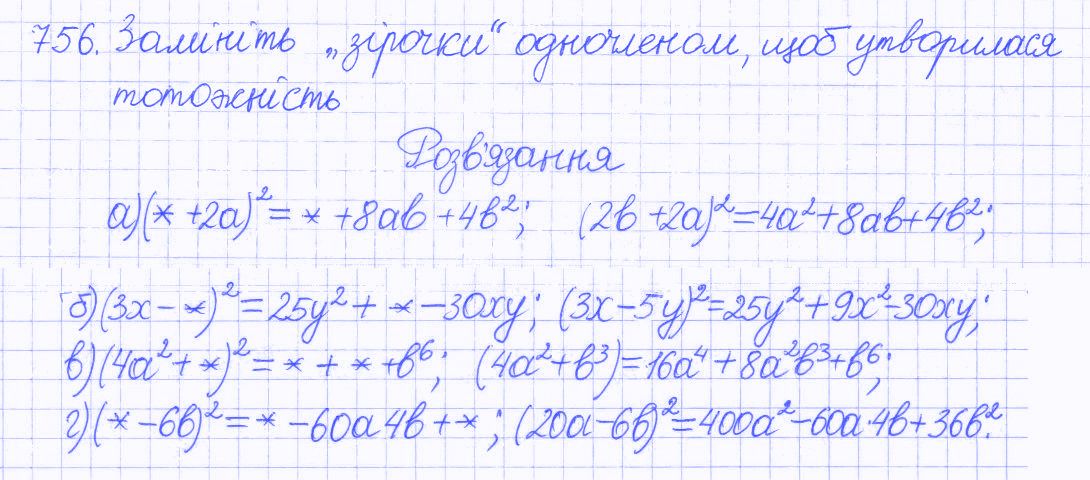 756. Замініть „зірочки“ одночленом, щоб утворилася
тотожність
Розв'язання
а)(* +2a)²= * +8ab +4b²; (2b +2a)²=4a²+8ab+4b²;
б)(3x - *)²=25y²+ * -30xy; (3x-5y)²=25y²+9x²-30xy;
в)(4a²+ *)²= * + * +b⁶; (4a²+b³)=16a⁴+8a²b³+b⁶;
г)(* -6b)²= * -60a4b + *; (20a-6b)²=400a²-60a·4b+36b².